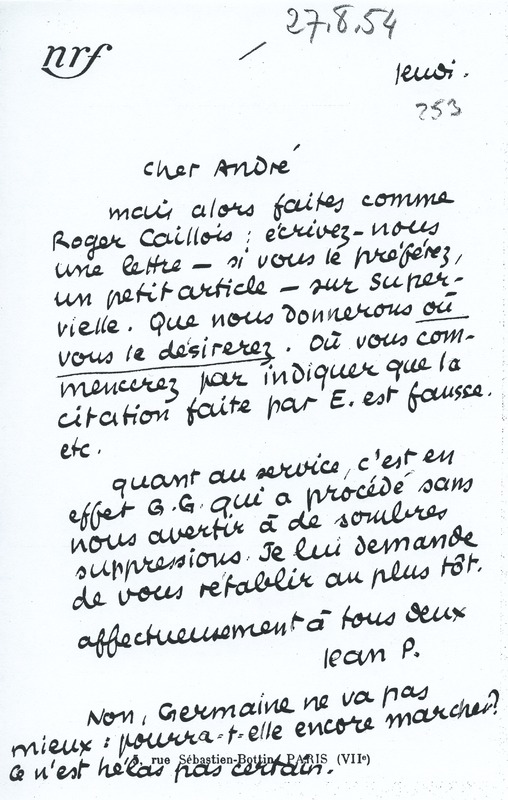 27.8.54
nrf
Jeudi.
253
Cher André
mais alors faites comme
Roger Caillois ; écrivez-nous
une lettre — si vous le préférez,
un petit article — sur Super-
vielle. Que nous donnerons où
vous le désirerez. Où vous com-
mencerez par indiquer que la
citation faite par E. est fausse.
etc.
quant au service, c'est en
effet G.G. qui a procédé sans
nous avertir à de sombres
suppressions. Je lui demande
de vous rétablir au plus tôt.
affectueusement à tous deux
Jean P.
Non, Germaine ne va pas
mieux : pourra-t-elle encore marcher?
5, rue Sébastien-Bottin, PARIS (VIIe)
Ce n'est hélas pas certain.